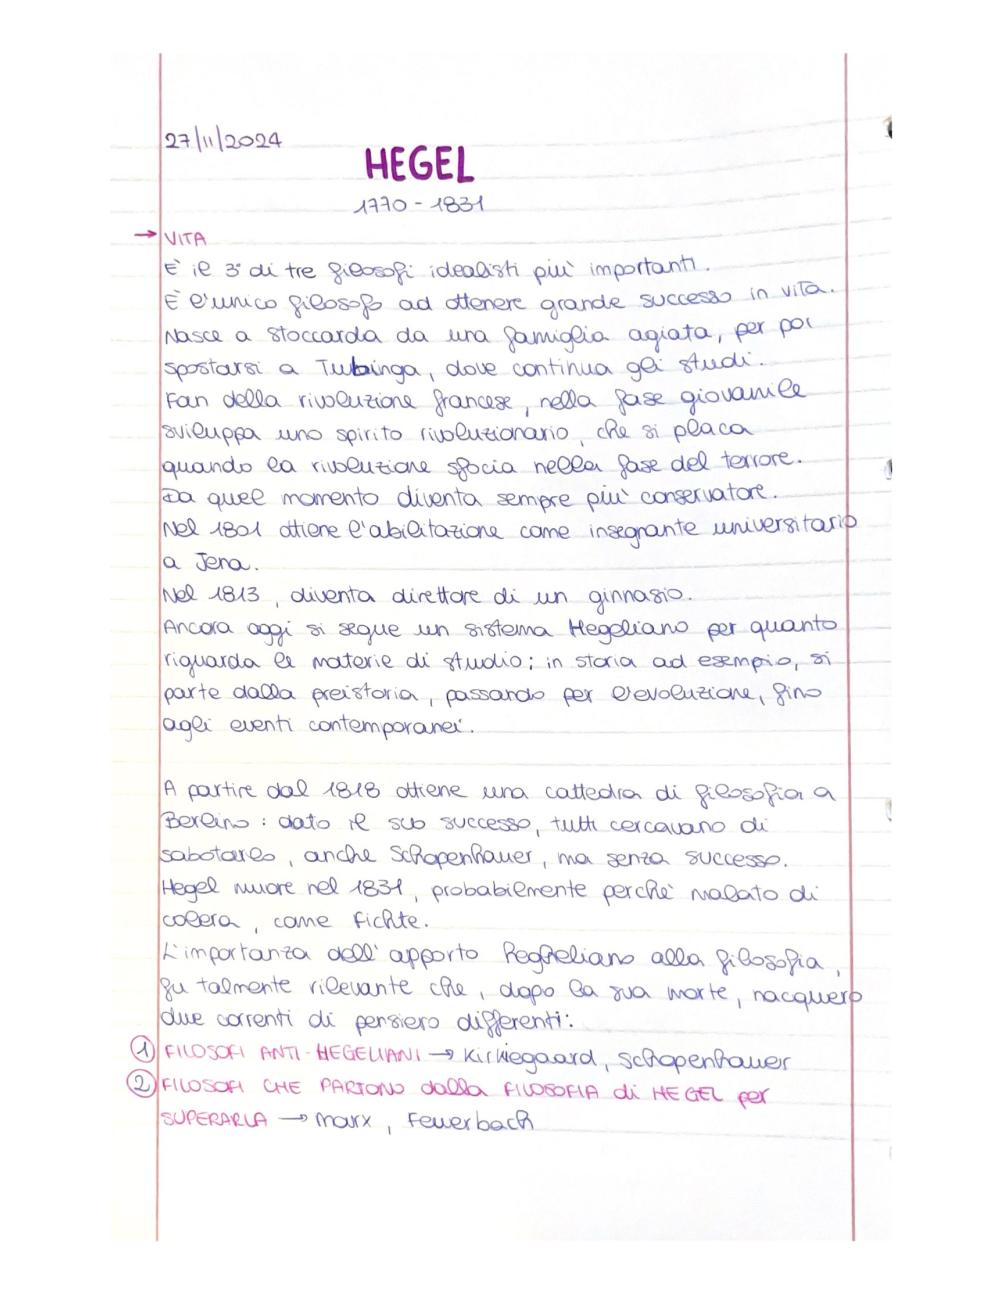 27/11/2024
HEGEL
1770 - 1831
→ VITA
È il 3° di tre filosofi idealisti più importanti.
È l'unico filosofo ad ottenere grande successo in vita.
Nasce a Stoccarda da una famiglia agiata, per poi
spostarsi a Tubinga, dove continua gli studi.
Fan della rivoluzione francese, nella fase giovanile
sviluppa uno spirito rivoluzionario, che si placa
quando la rivoluzione sfocia nella fase del terrore.
Da quel momento diventa sempre più conservatore.
Nel 1801 ottiene l'abilitazione come insegnante universitario
a Jena.
Nel 1813, diventa direttore di un ginnasio.
Ancora oggi si segue un sistema Hegeliano per quanto
riguarda le materie di studio; in storia ad esempio, si
parte dalla preistoria, passando per l'evoluzione, fino
agli eventi contemporanei.
A partire dal 1818 ottiene una cattedra di filosofia a
Berlino: dato il suo successo, tutti cercavano di
sabotarlo, anche Schopenhauer, ma senza successo.
Hegel muore nel 1831, probabilmente perchè malato di
colera, come Fichte.
L'importanza dell'apporto hegheliano alla filosofia,
fu talmente rilevante che, dopo la sua morte, nacquero
due correnti di pensiero differenti:
① FILOSOFI ANTI-HEGELIANI → Kirkiegaard, Schopenhauer
② FILOSOFI CHE PARTONO dalla FILOSOFIA di HEGEL per
SUPERARLA → Marx, Feuerbach